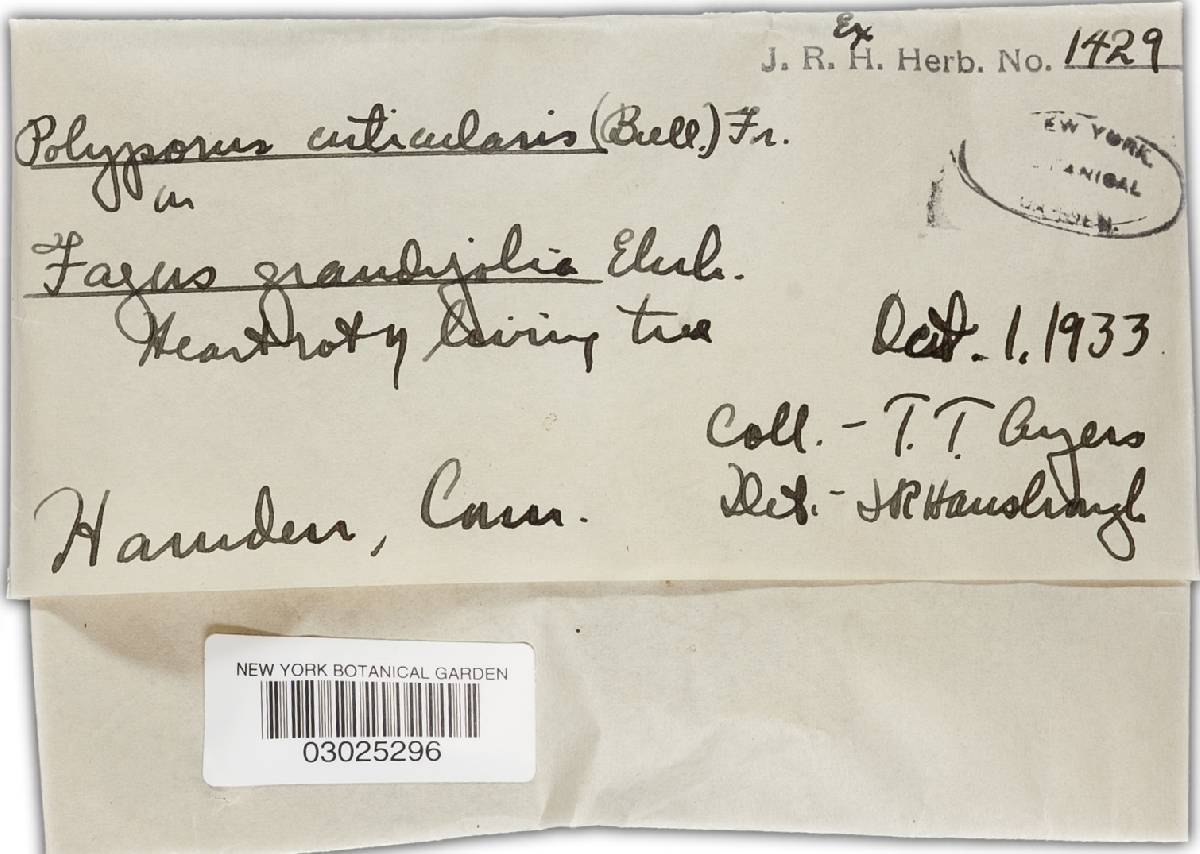 Ex
J. R. H. Herb. No. 1429
Polyporus cuticularis (Bull.) Fr.
on
NEW YORK
BOTANICAL
GARDEN.
Fagus grandifolia Ehrh.
Heartrot of living tree
Oct. 1, 1933
Coll. - T. T. Ayers
Det. - J R Hansbrough
Hamden, Conn.
NEW YORK BOTANICAL GARDEN
03025296